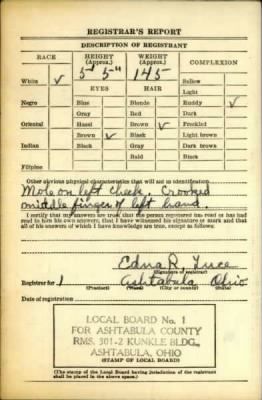 REGISTRAR'S REPORT
DESCRIPTION OF REGISTRANT
RACE HEIGHT (Approx.) WEIGHT (Approx.) COMPLEXION
5' 5" 145
White ✓ Sallow
EYES HAIR Light
Negro Blue Blonde Ruddy ✓
Gray Red Dark
Oriental Hazel Brown ✓ Freckled
Brown ✓ Black Light brown
Indian Black Gray Dark brown
Bald Black
Filipino
Other obvious physical characteristics that will aid in identification
Mole on left cheek. Crooked
middle finger of left hand.
I certify that my answers are true; that the person registered has read or has had
read to him his own answers; that I have witnessed his signature or mark and that
all of his answers of which I have knowledge are true, except as follows:
Edna R. Luce
(Signature of registrar)
Registrar for 1 Ashtabula Ohio
(Precinct) (Ward) (City or county) (State)
Date of registration
LOCAL BOARD No. 1
FOR ASHTABULA COUNTY
RMS. 301-2 KUNKLE BLDG.,
ASHTABULA, OHIO
(STAMP OF LOCAL BOARD)
(The stamp of the Local Board having jurisdiction of the registrant
shall be placed in the above space.)